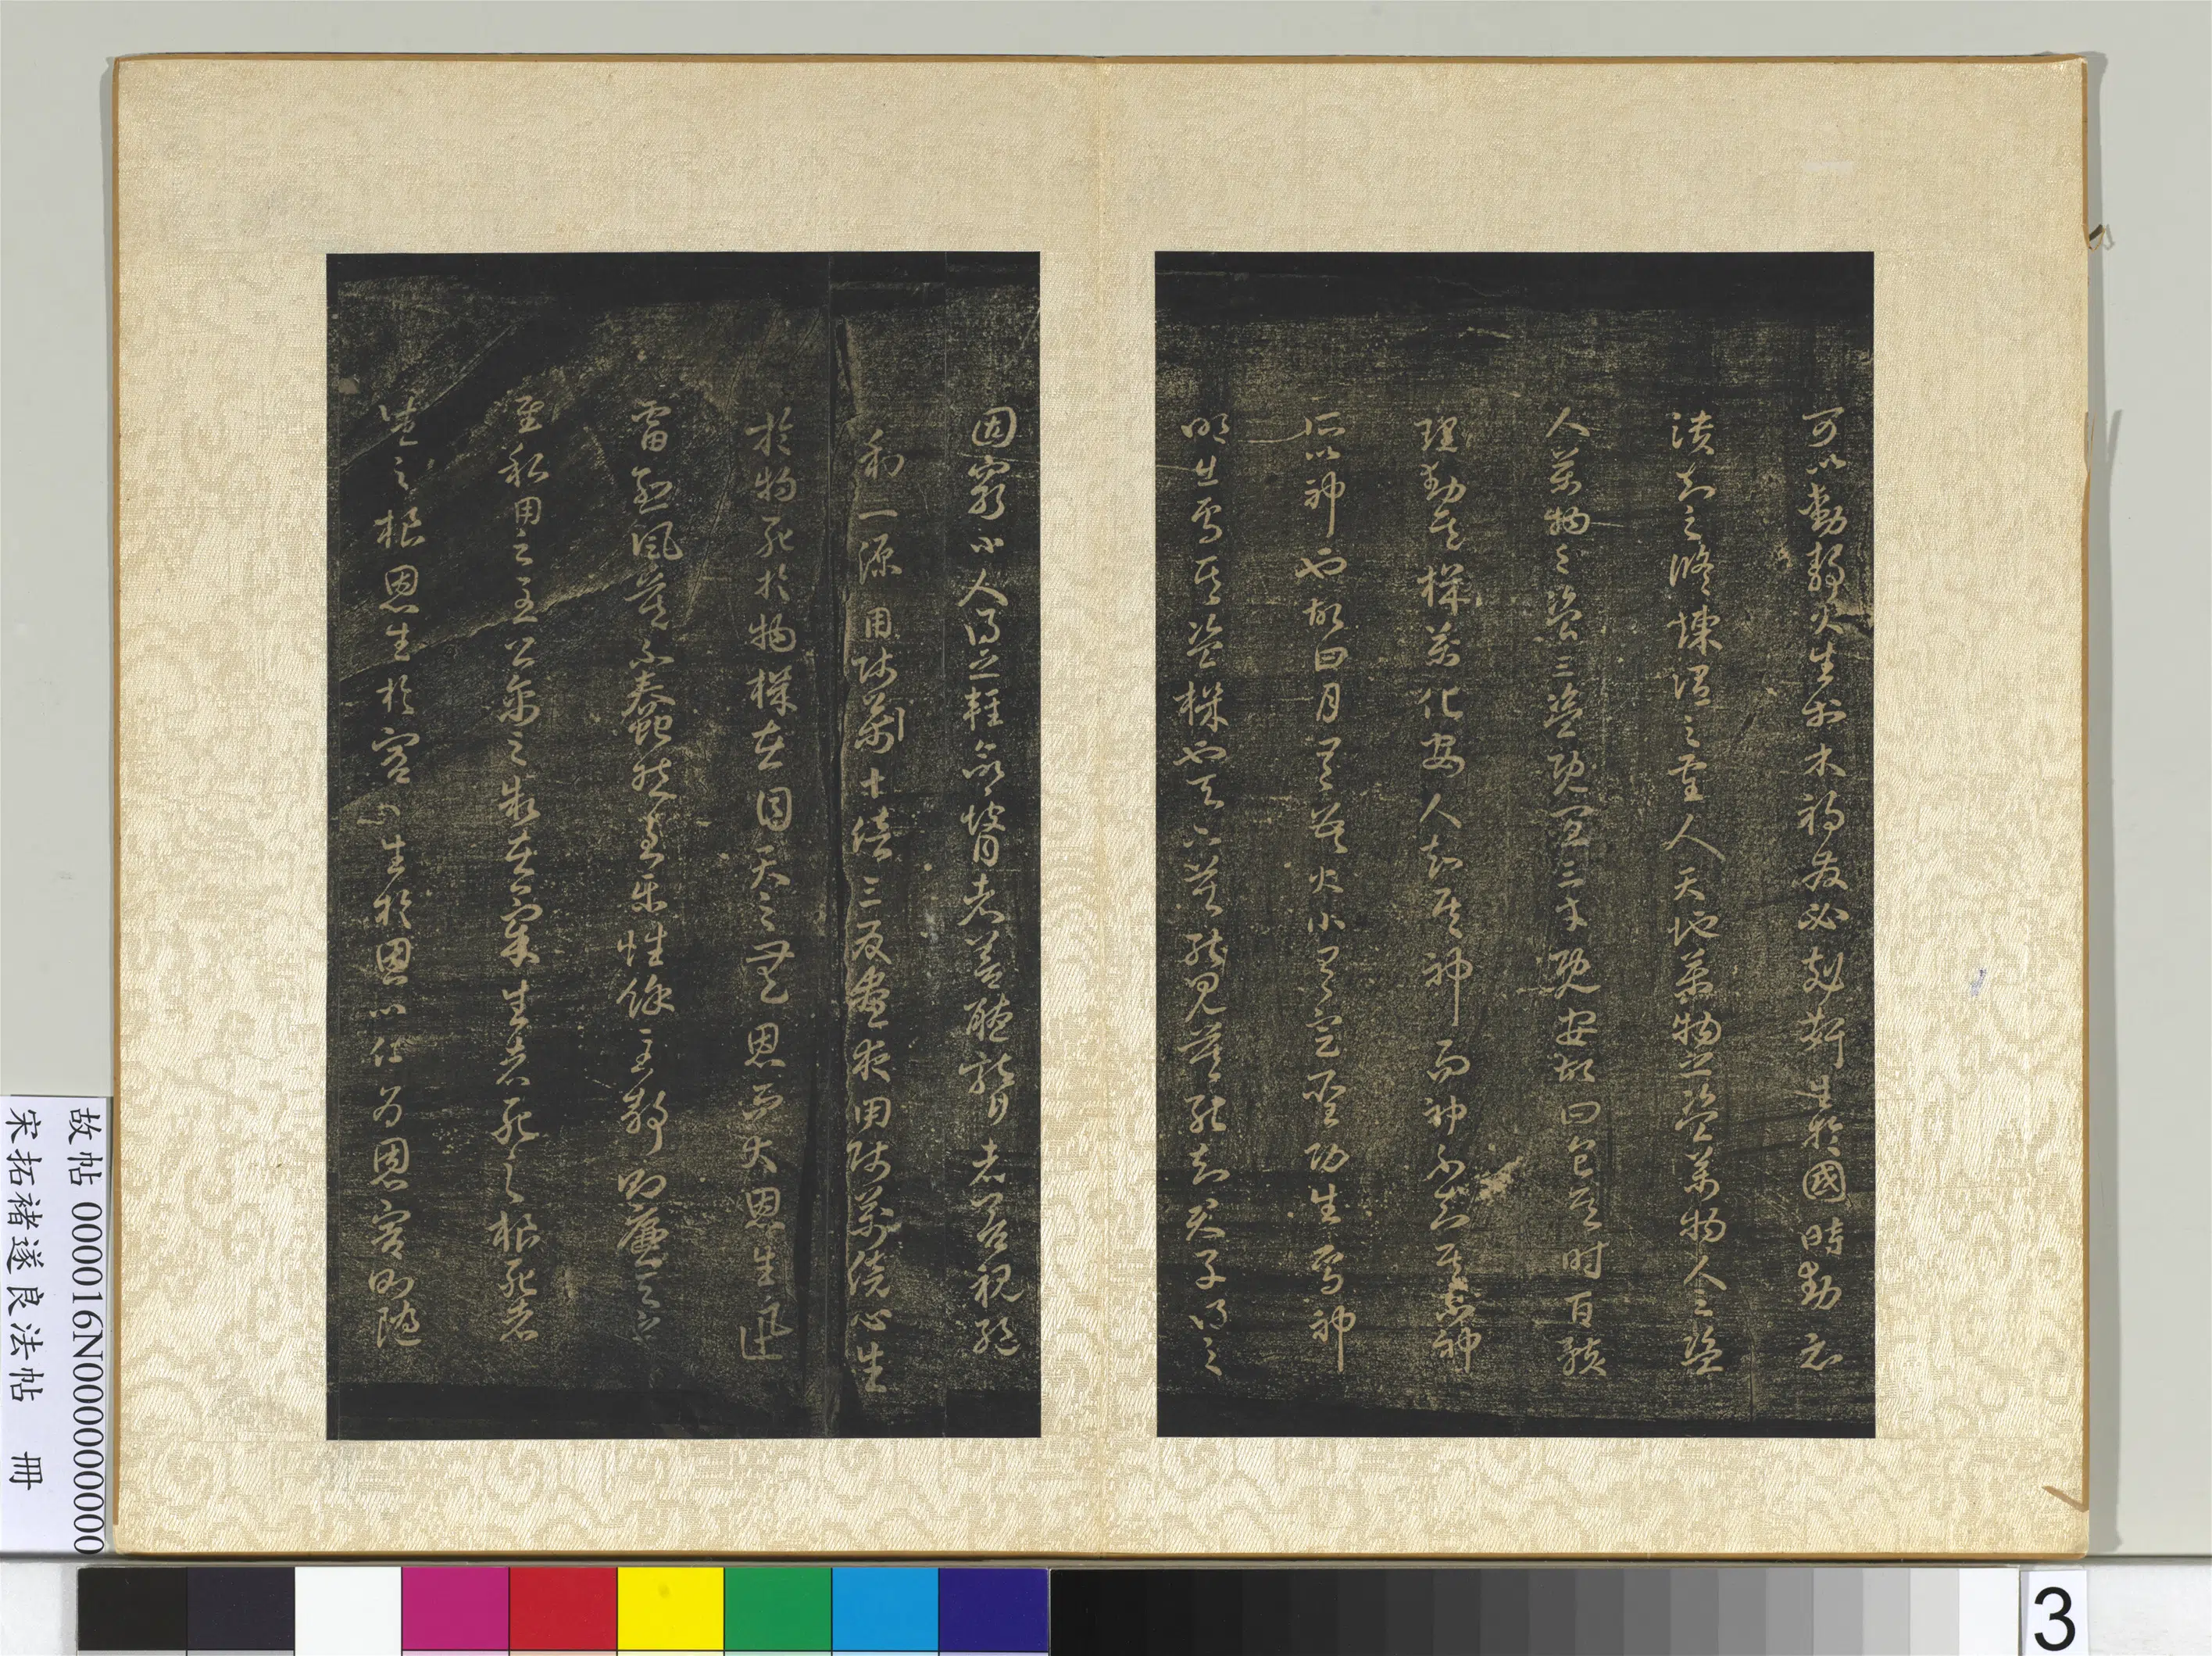 可以動靜火生於木禍發必剋姧生於國時動必
潰知之脩煉謂之聖人天地萬物之盜萬物人之盜
人萬物之盜三盜既宜三才既安故曰食其時百骸
理動其機萬化安人知其神而神不知其不神
所以神也故日月有數大小有定聖功生焉神
明出焉其盜機也天下莫能見莫能知君子得之
因窮小人得之輕命瞽者善聽聾者善視絕
利一源用師萬十倍三反晝夜用師萬倍心生
於物死於物機在目天之無恩而大恩生迅
雷烈風莫不蠢然至樂性餘至靜則廉天之
至私用之至公禽之制在氣生者死之根死者
生之根恩生於害害生於恩以仁為恩害則隨
故帖 000016N000000000
宋拓褚遂良法帖 冊
3